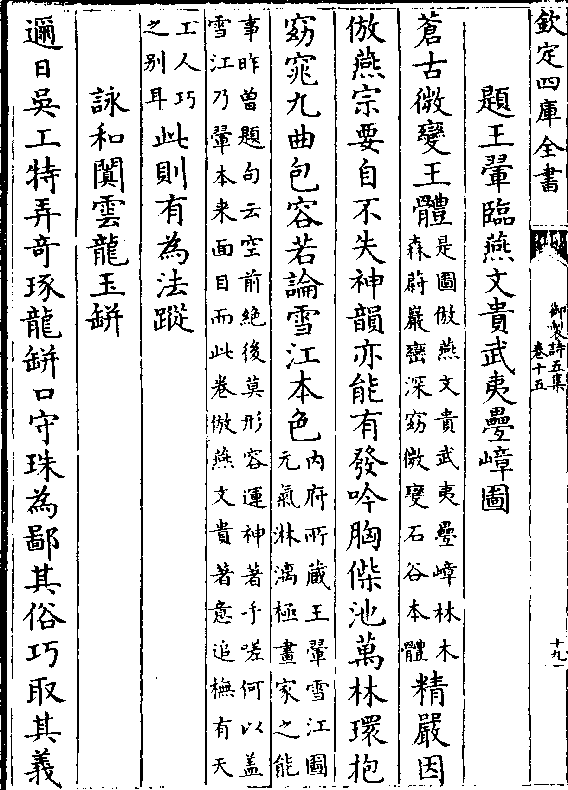 欽定四庫全書
御製詩五集
卷十五
十九
題王翬臨燕文貴武夷疊嶂圖
蒼古微變王體
是圖倣燕文貴武夷疊嶂林木
森蔚巖巒深窈微變石谷本體
精嚴因
倣燕宗要自不失神韻亦能有發吟胸偨池萬林環抱
窈窕九曲包容若論雪江本色
内府所藏王翬雪江圖
元氣淋漓極畫家之能
事昨曾題句云空前絶後莫形容運神著手嗟何以盖
雪江乃翬本来面目而此卷倣燕文貴著意追橅有天
工人巧
之别耳
此則有為法蹤
詠和闐雲龍玉缾
邇日吳工特弄奇琢龍缾口守珠為鄙其俗巧取其義